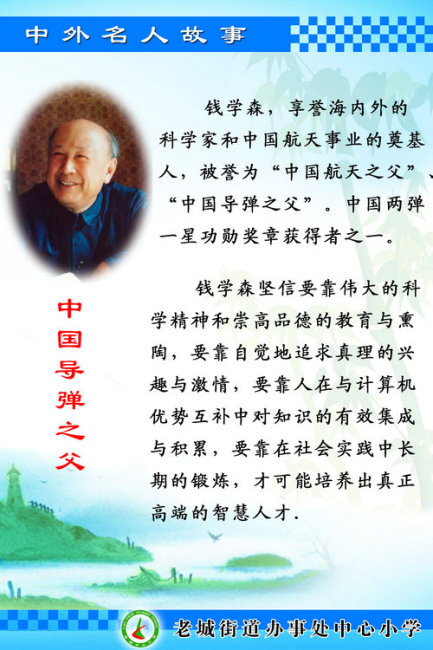 中外名人故事
钱学森，享誉海内外的
科学家和中国航天事业的奠基
人，被誉为“中国航天之父”、
“中国导弹之父”。中国两弹
一星功勋奖章获得者之一。
钱学森坚信要靠伟大的科
学精神和崇高品德的教育与熏
陶，要靠自觉地追求真理的兴
趣与激情，要靠人在与计算机
优势互补中对知识的有效集成
与积累，要靠在社会实践中长
期的锻炼，才可能培养出真正
高端的智慧人才.
中国导弹之父
老城街道办事处中心小学